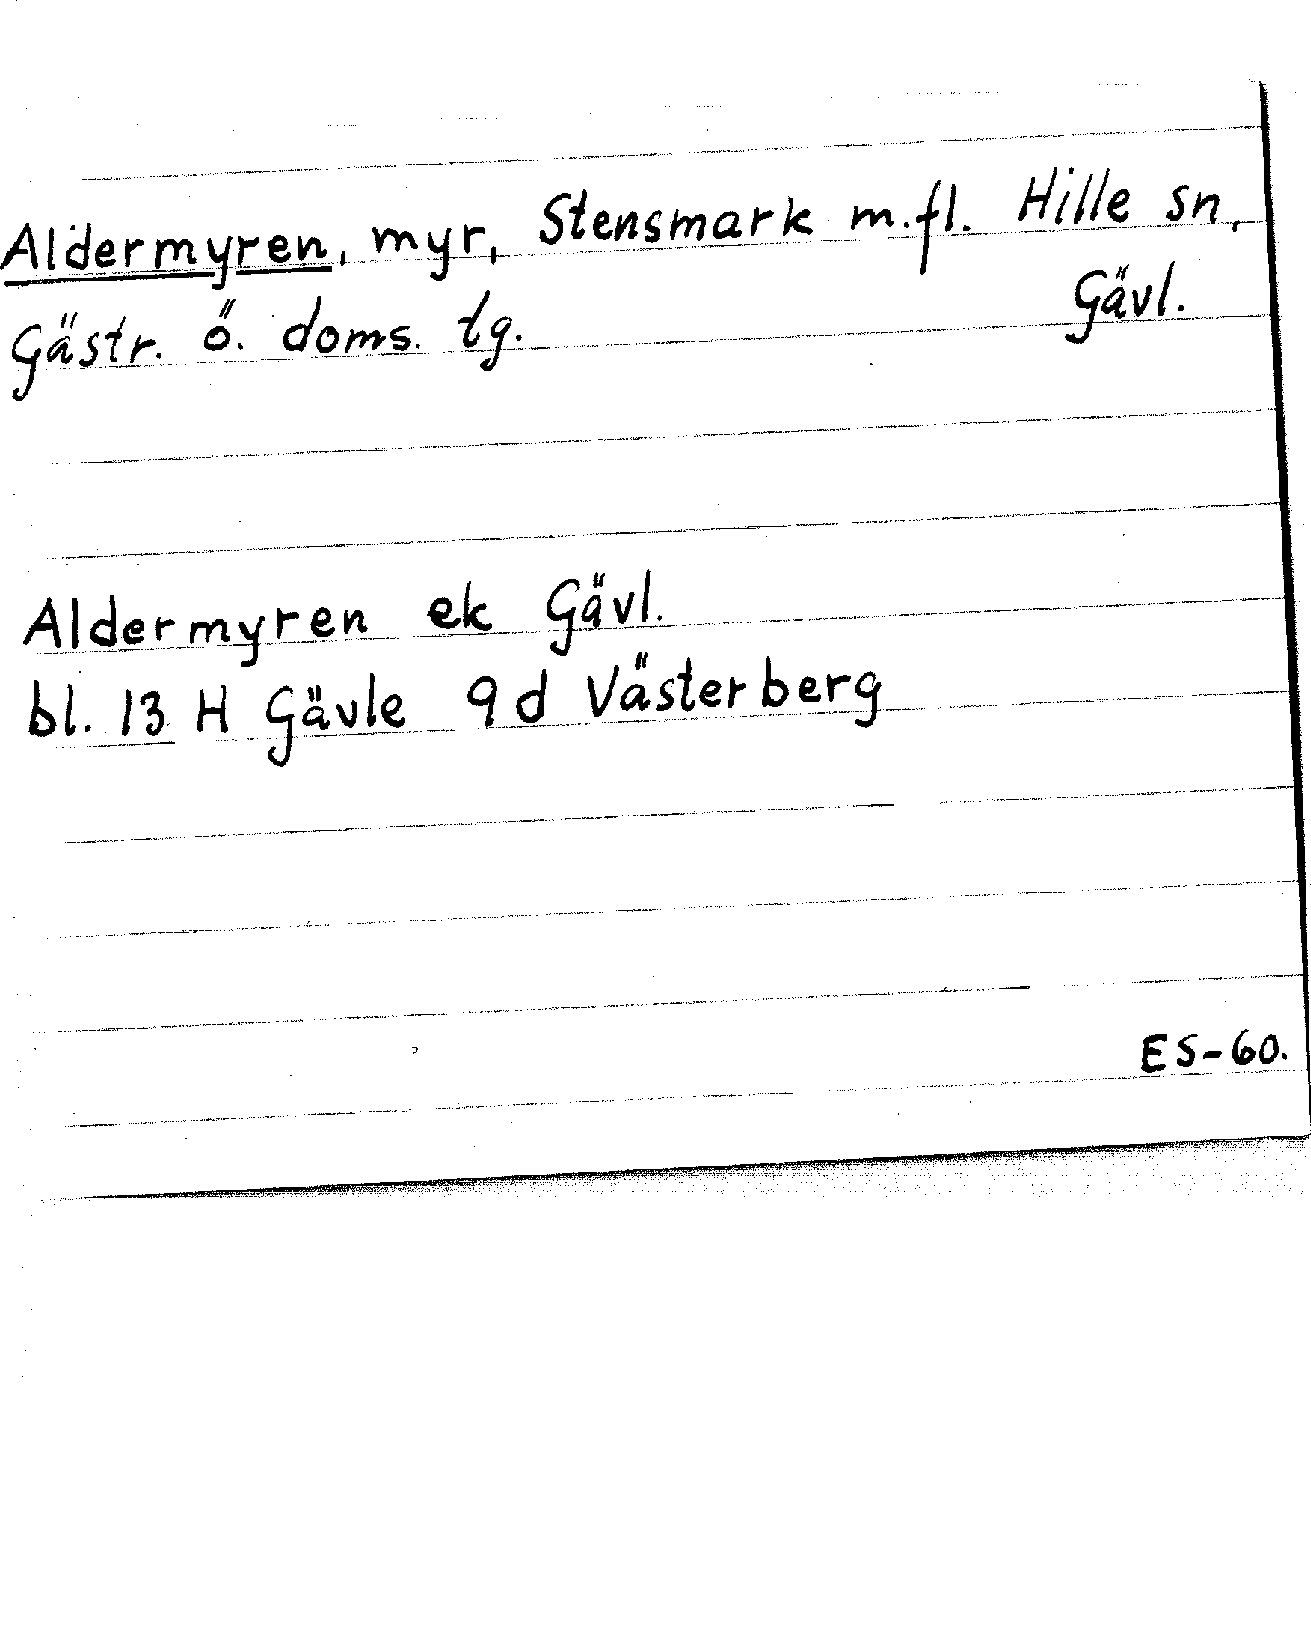 Aldermyren, myr, Stensmark m.fl. Hille sn,
Gästr. ö. doms. tg. Gävl.
Aldermyren ek Gävl.
bl. 13 H Gävle 9d Västerberg
ES-60.